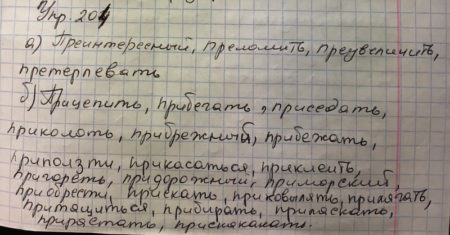 Упр. 204
а) Преинтересный, преломить, преувеличить,
претерпевать
б) Прицепить, прибегать, приседать,
приколоть, прибрежный, прибежать,
приползти, прикасаться, приклеить,
пригореть, придорожный, приморский,
приобрести, приковылять, прилягать,
притащиться, прибирать, приласкать,
прирастать, прискакать.